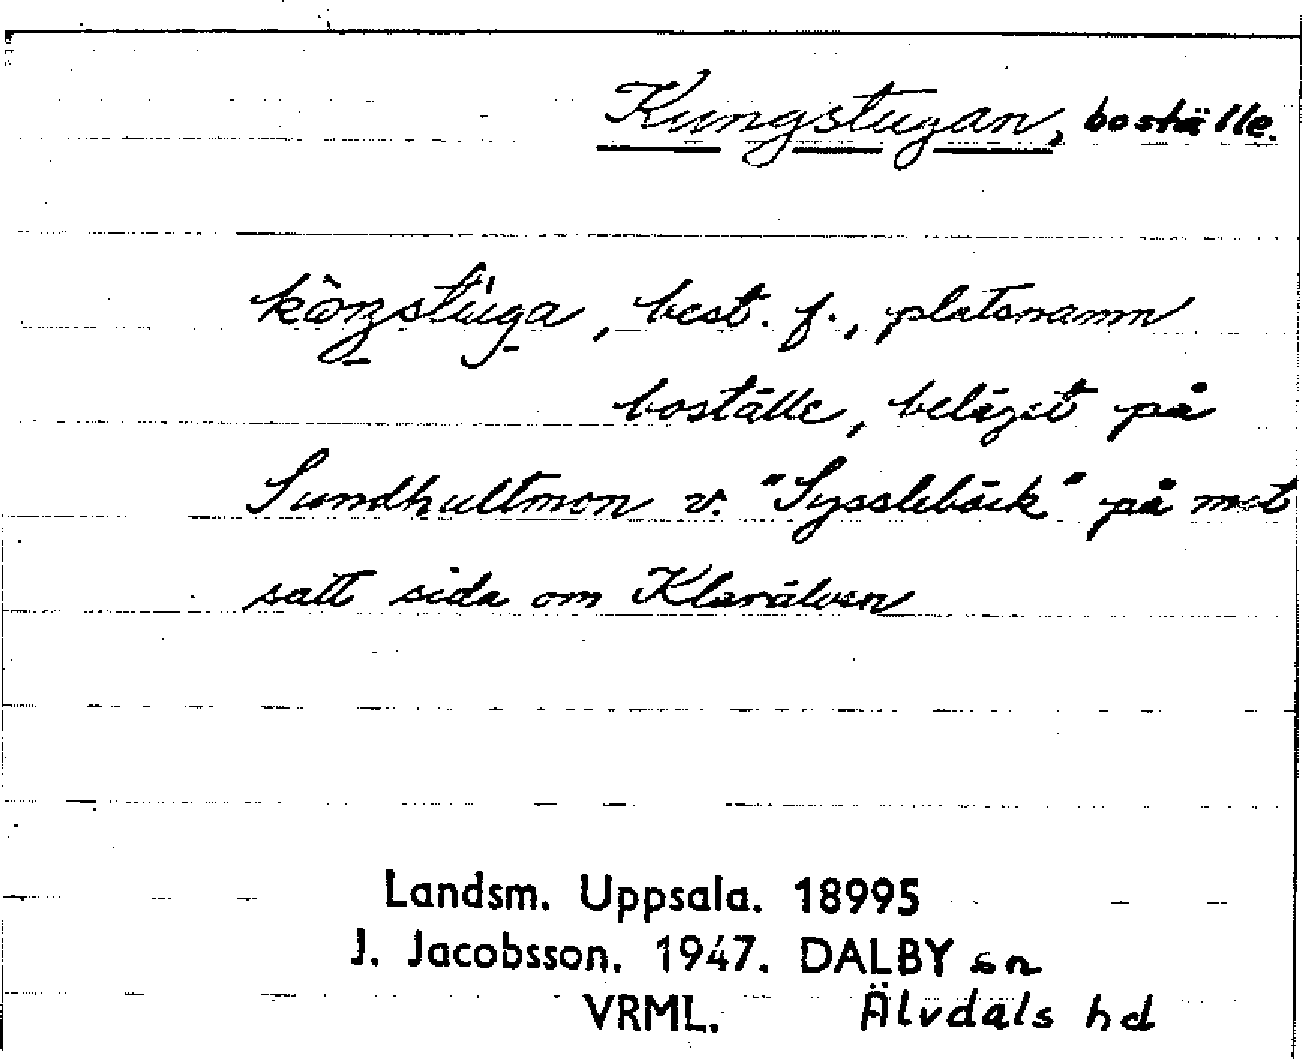 Kungstugan, boställe.
kö̀ŋstùga, best. f., platsnamn
boställe, beläget på
Sundhultmon v. "Sysslebäck" på mot
satt sida om Klarälven
Landsm. Uppsala. 18995
J. Jacobsson. 1947. DALBY sn
VRML. Älvdals hd